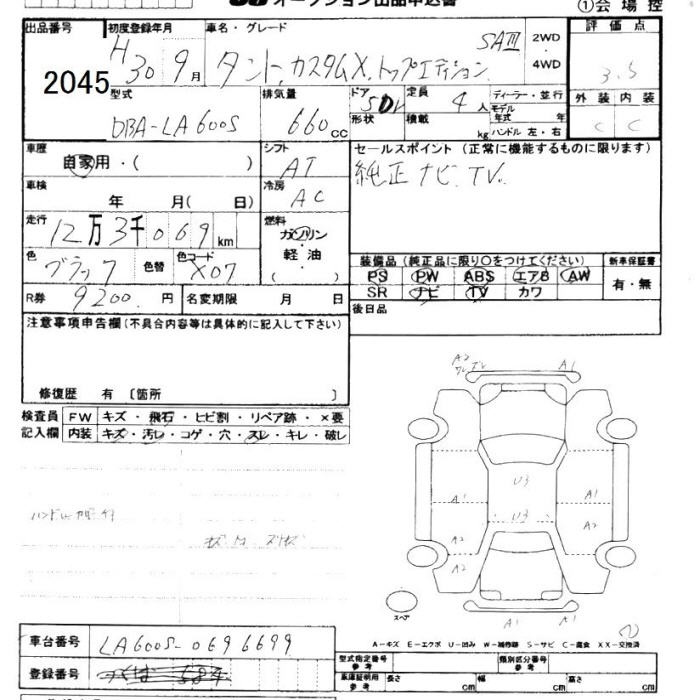 オークション出品申込書
①会場控
出品番号 2045
初度登録年月 H30 9月
車名・グレード タント カスタムX トップエディション SAⅢ
2WD・4WD
評価点 3.5
型式 DBA-LA600S
排気量 660cc
ドア形状 5Dr
定員 4人
積載 kg
ディーラー・並行
モデル年式 年
ハンドル 左・右
外装 C 内装 C
車歴 自家用・( )
シフト AT
セールスポイント (正常に機能するものに限ります)
純正ナビ.TV.
車検 年 月( 日)
冷房 AC
走行 12万3千069km
燃料 ガソリン・軽油・( )
色 ブラック 色替 色コード X07
装備品 (純正品に限り○をつけてください)
新車保証書
PS PW ABS エアB AW
有・無
SR ナビ TV カワ
R券 9200.円 名変期限 月 日
後日品
注意事項申告欄 (不具合内容等は具体的に記入して下さい)
修復歴 有 〔箇所 〕
検査員記入欄
FW キズ・飛石・ヒビ割・リペア跡・×要
内装 キズ・汚レ・コゲ・穴・スレ・キレ・破レ
A2
A1
U3
A1 U3 A1
A2 A2
A2
A1 A1
スペア
A-キズ E-エクボ U-凹み W-補修跡 S-サビ C-腐食 XX-交換済
車台番号 LA600S-0696699
登録番号
型式指定番号 参考
類別区分番号 参考
車庫証明用参考 長さ cm 幅 cm 高さ cm